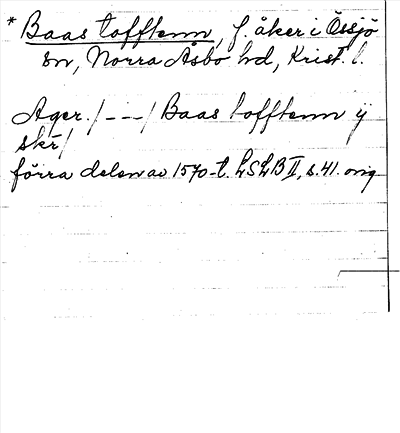 * Baas tofftenn, f. åker i Össjö
sn, Norra Åsbo hd, Krist. l.
Ager. /---/ Baas tofftenn ÿ
skr/
förra delen av 1570-t. LSLB II, s. 41. orig